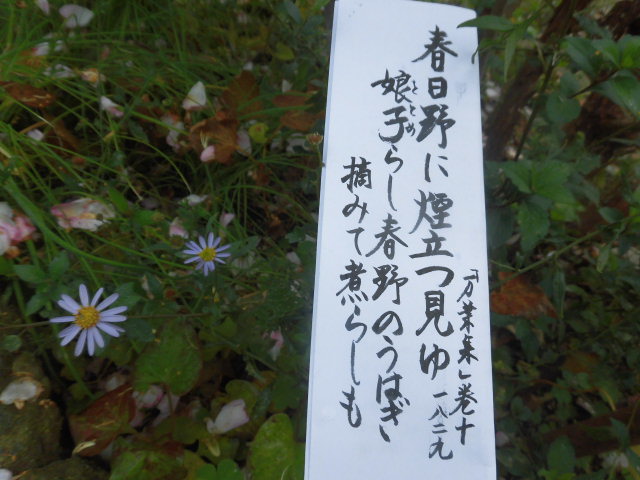 春日野に煙立つ見ゆ
娘子らし春野のうはぎ
をとめ
摘みて煮らしも
「万葉集」巻十
一八二九